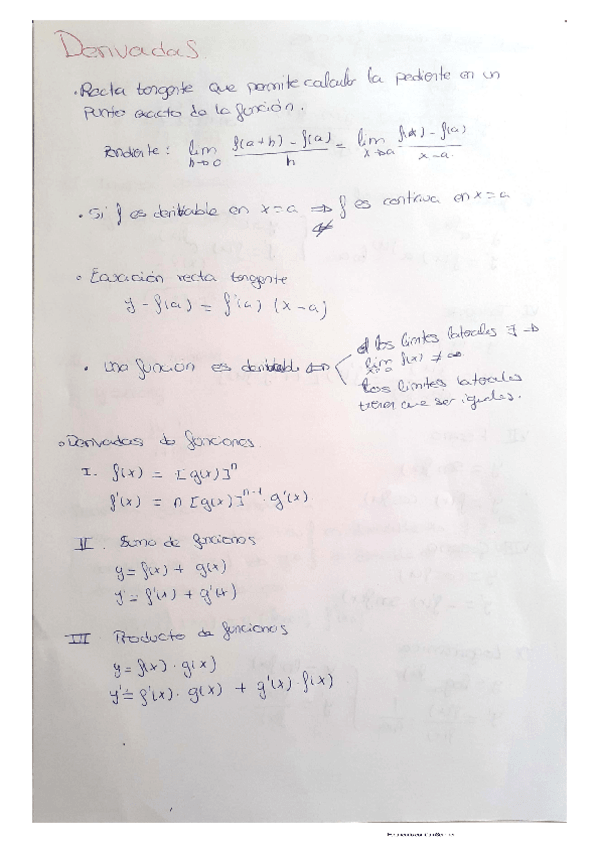 Derivadas
· Recta tangente que permite calcular la pediente en un
punto exacto de la función.
Pendiente: lim h→0 f(a+h) - f(a) / h = lim x→a f(x) - f(a) / x-a
· Si f es derivable en x=a ⇒ f es continua en x=a
⇍
· Ecuación recta tangente
y - f(a) = f'(a) (x-a)
· Una función es derivable ⇔
los límites laterales ∃ →
lim f(x) ≠ ∞
Los límites laterales
tienen que ser iguales.
· Derivadas de funciones.
I. f(x) = [g(x)]^n
f'(x) = n [g(x)]^{n-1} · g'(x)
II. Suma de funciones
y = f(x) + g(x)
y' = f'(x) + g'(x)
III. Producto de funciones
y = f(x) · g(x)
y' = f'(x) · g(x) + g'(x) · f(x)